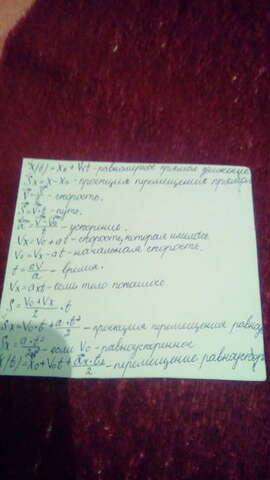 x(t) = x₀ + Vxt - равномерное прямол. движение
Sx = x - x₀ - проекция перемещения
V = S/t - скорость.
S = V · t - путь.
a = (V - V₀)/t - ускорение.
Vx = V₀ + at - скорость, которая
V₀ = Vx - at - начальная скорость.
t = ΔV/a - время.
Vx = axt - если тело
S = (V₀ + Vx)/2 · t
Sx = V₀ · t + a · t²/2 - проекция перемещения
Sx = a · t²/2 - если V₀ - равноускоренное
x(t) = x₀ + V₀t + axt²/2 - перемещение